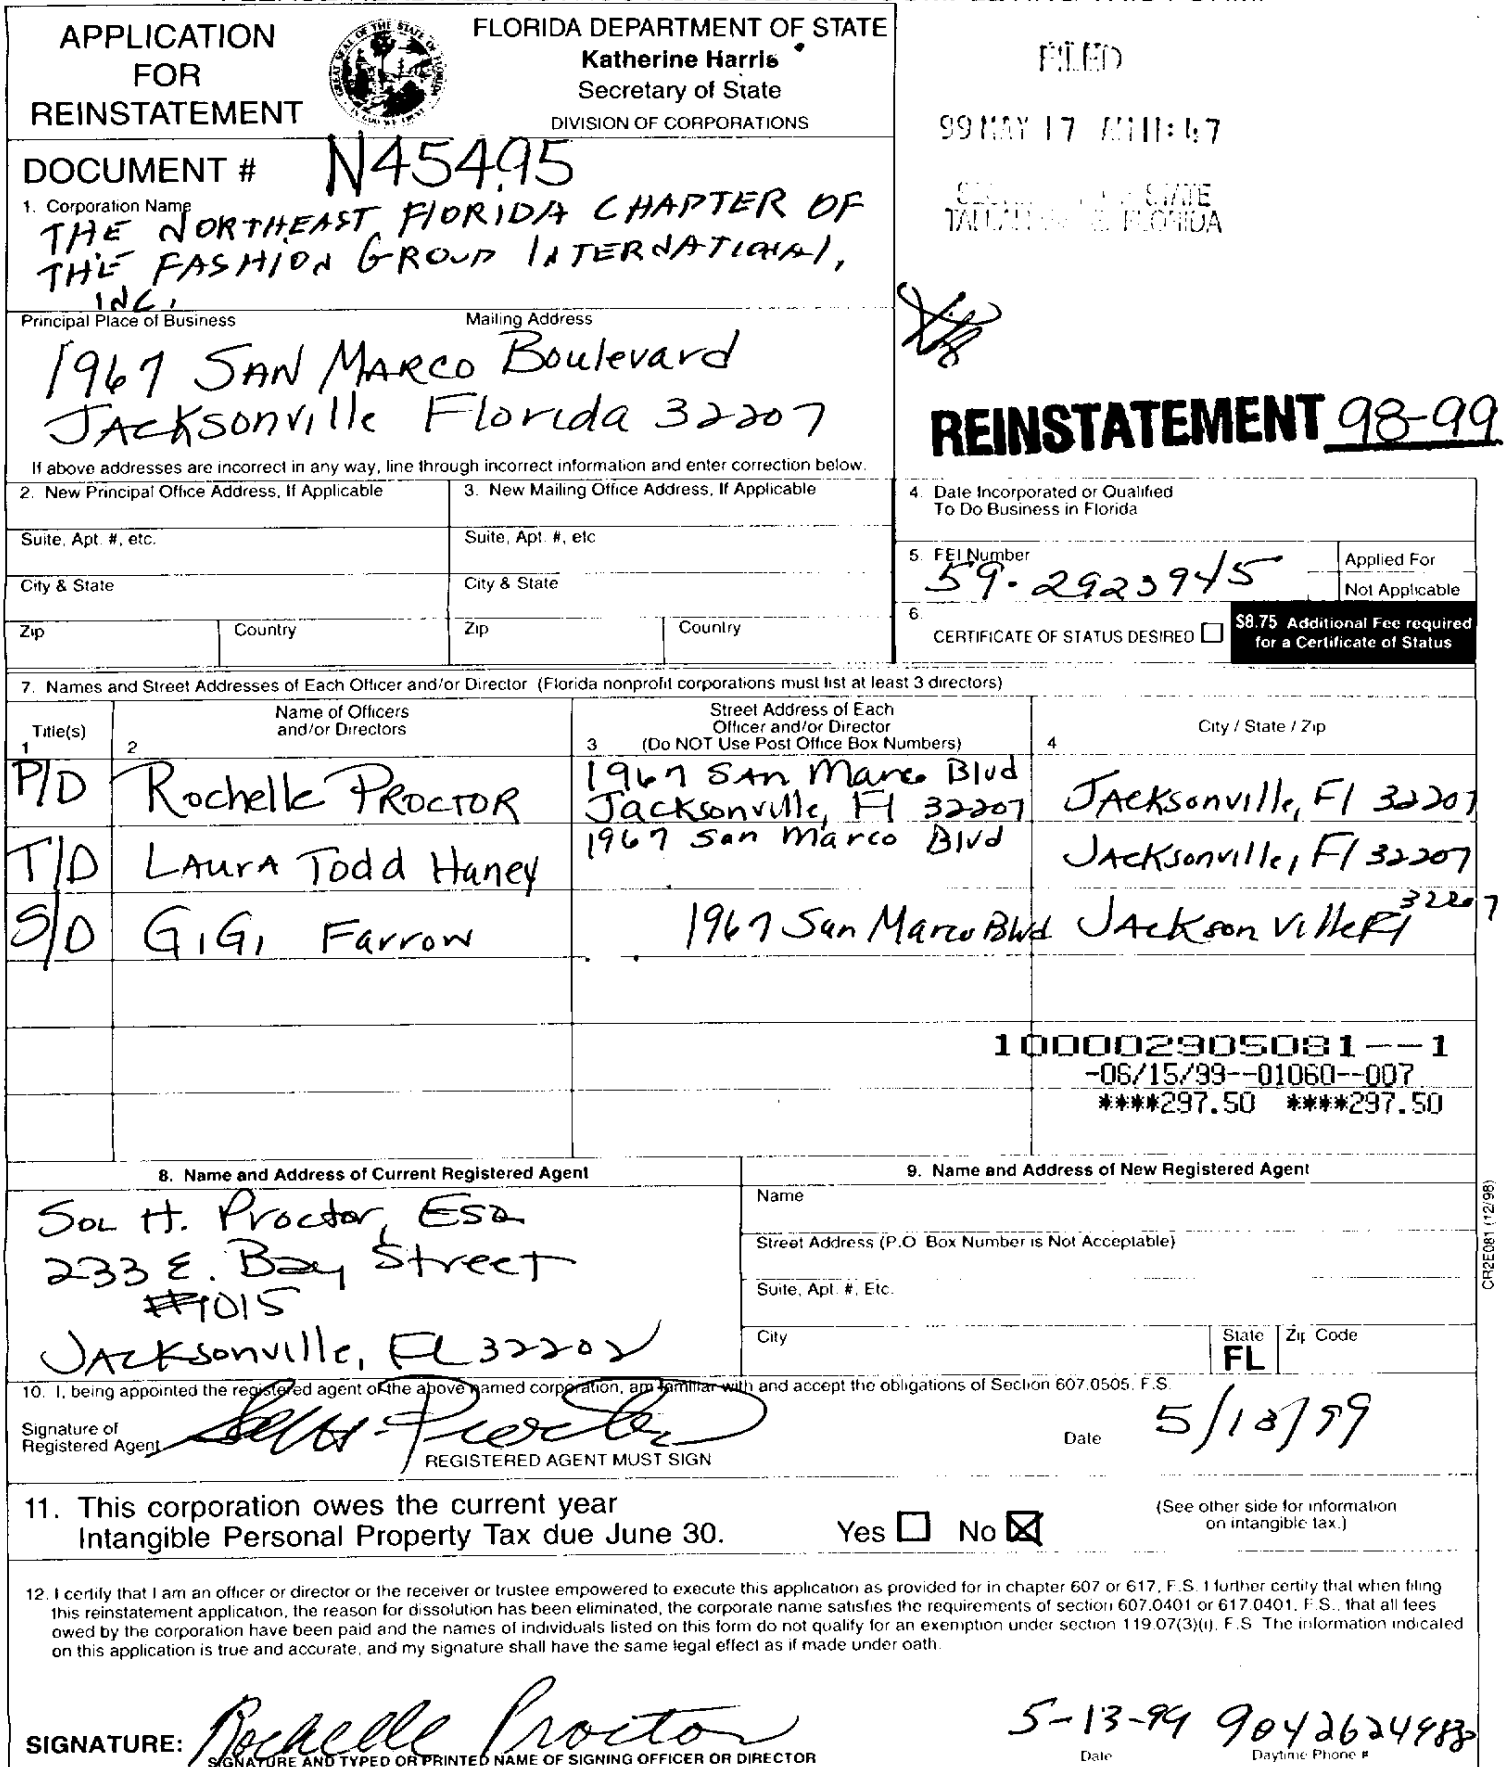 APPLICATION
FOR
REINSTATEMENT
FLORIDA DEPARTMENT OF STATE
Katherine Harris
Secretary of State
DIVISION OF CORPORATIONS
FILED
99 MAY 17 AM 11:47
STATE
FLORIDA
DOCUMENT # N45495
1. Corporation Name
THE NORTHEAST FLORIDA CHAPTER OF
THE FASHION GROUP INTERNATIONAL,
INC.
Principal Place of Business Mailing Address
1967 SAN MARCO Boulevard
JACKSONVILLE Florida 32207
REINSTATEMENT 98-99
If above addresses are incorrect in any way, line through incorrect information and enter correction below.
2. New Principal Office Address, If Applicable
3. New Mailing Office Address, If Applicable
4. Date Incorporated or Qualified
To Do Business in Florida
Suite, Apt. #, etc.
Suite, Apt. #, etc
5. FEI Number
59-2923945
Applied For
Not Applicable
City & State
City & State
6.
CERTIFICATE OF STATUS DESIRED
$8.75 Additional Fee required
for a Certificate of Status
Zip Country
Zip Country
7. Names and Street Addresses of Each Officer and/or Director (Florida nonprofit corporations must list at least 3 directors)
Title(s)
1
Name of Officers
and/or Directors
2
Street Address of Each
Officer and/or Director
3 (Do NOT Use Post Office Box Numbers)
City / State / Zip
4
P/D Rochelle PROCTOR 1967 SAn Marco Blvd
Jacksonville, Fl 32207 JAcKsonville, Fl 32207
T/D LAurA Todd Haney 1967 San Marco Blvd JAcKsonville, Fl 32207
S/D GiGi Farrow 1967 San Marco Blvd JAcKsonville Fl 32207
100002905081--1
-06/15/99--01060--007
****297.50 ****297.50
8. Name and Address of Current Registered Agent
SOL H. Proctor, ESQ
233 E. Bay Street
#1015
JACKSonville, FL 32202
9. Name and Address of New Registered Agent
Name
Street Address (P.O. Box Number is Not Acceptable)
Suite, Apt. #, Etc.
City
State
FL
Zip Code
CR2E081 (12/98)
10. I, being appointed the registered agent of the above named corporation, am familiar with and accept the obligations of Section 607.0505, F.S.
Signature of
Registered Agent
REGISTERED AGENT MUST SIGN
Date 5/13/99
11. This corporation owes the current year
Intangible Personal Property Tax due June 30.
Yes No
(See other side for information
on intangible tax.)
12. I certify that I am an officer or director or the receiver or trustee empowered to execute this application as provided for in chapter 607 or 617, F.S. I further certify that when filing
this reinstatement application, the reason for dissolution has been eliminated, the corporate name satisfies the requirements of section 607.0401 or 617.0401, F.S., that all fees
owed by the corporation have been paid and the names of individuals listed on this form do not qualify for an exemption under section 119.07(3)(i), F.S. The information indicated
on this application is true and accurate, and my signature shall have the same legal effect as if made under oath.
SIGNATURE: Rochelle Proctor
SIGNATURE AND TYPED OR PRINTED NAME OF SIGNING OFFICER OR DIRECTOR
5-13-99 9042624988
Date Daytime Phone #